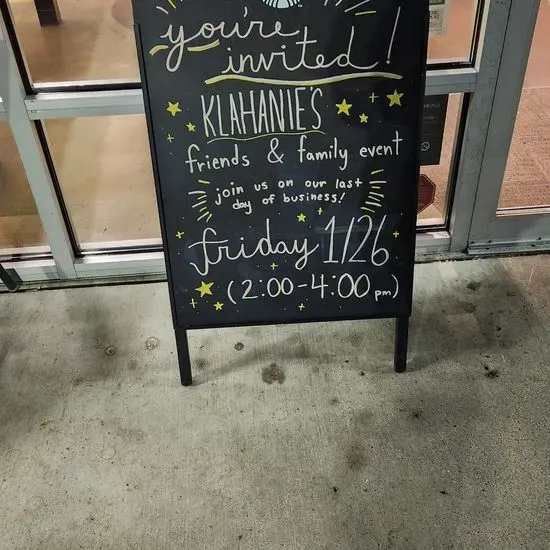 you're
invited!
KLAHANIE'S
friends & family event
join us on our last
day of business!
friday 1/26
(2:00-4:00 pm)